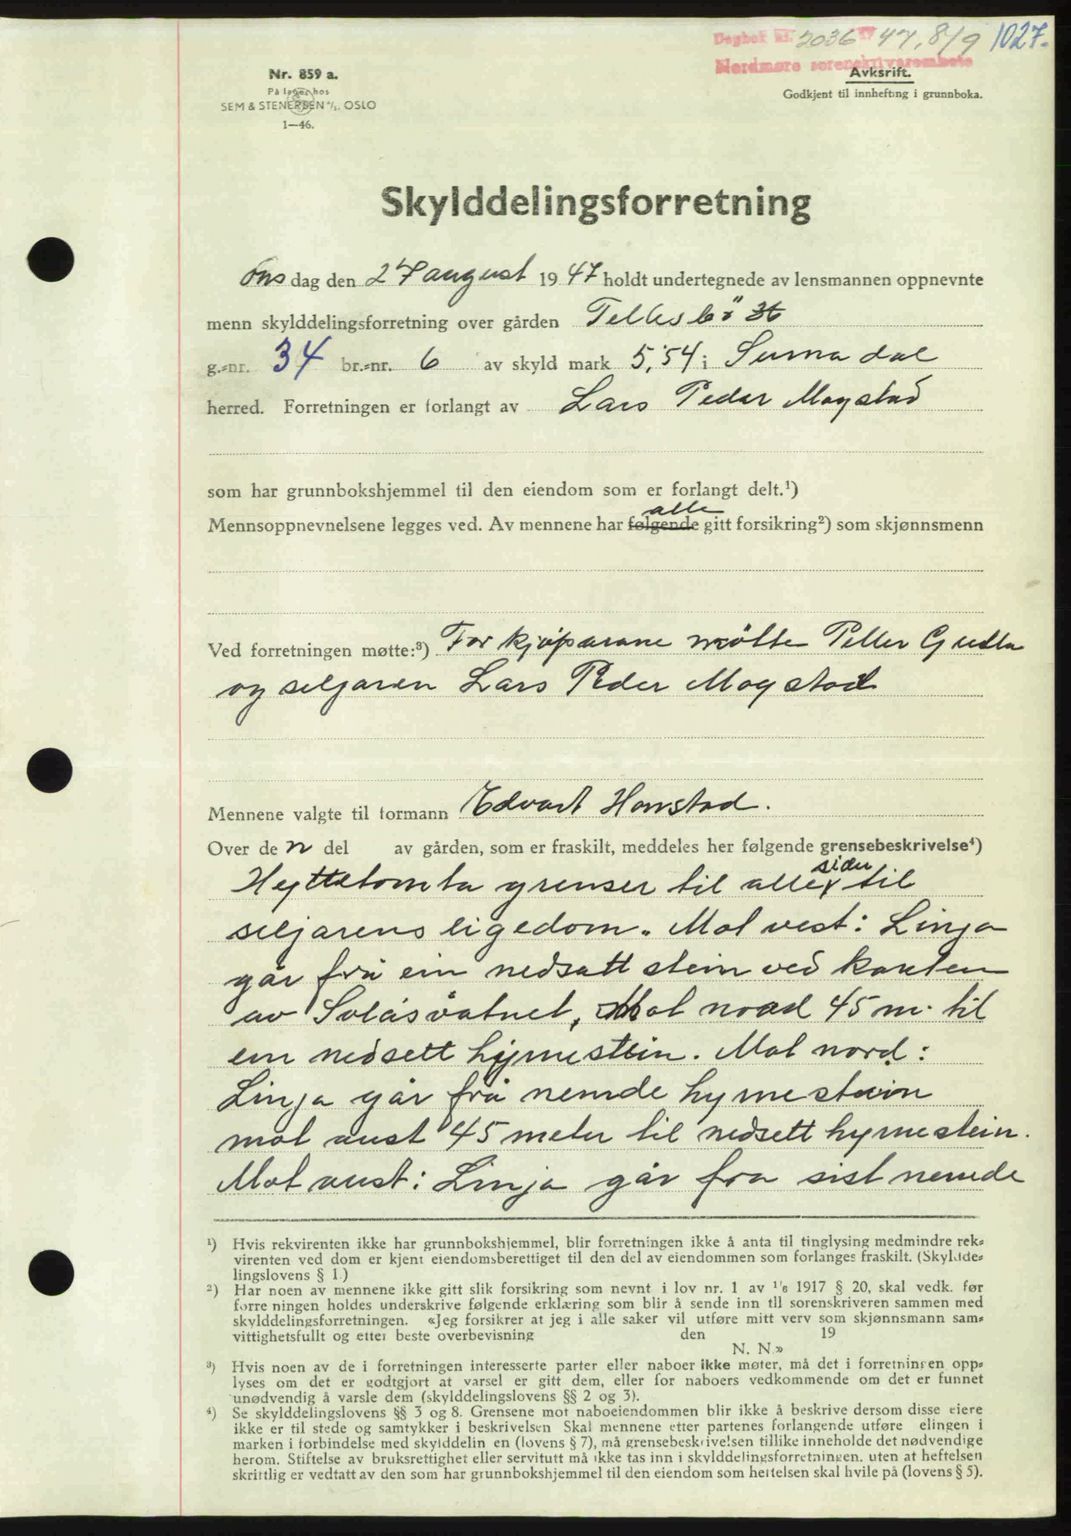 Dagbok nr. 2036 47, 8/9 1027.
Nordmøre sorenskriverembete
Avksrift.
Godkjent til innhefting i grunnboka.
Nr. 859 a.
På lager hos
SEM & STENERSEN A/S, OSLO
1—46.
Skylddelingsforretning
Ons dag den 27 august 1947 holdt undertegnede av lensmannen oppnevnte
menn skylddelingsforretning over gården Tellesbö
g.-nr. 34 br.-nr. 6 av skyld mark 5,54 i Surnadal
herred. Forretningen er forlangt av Lars Peder Mogstad
som har grunnbokshjemmel til den eiendom som er forlangt delt.¹)
alle
Mennsoppnevnelsene legges ved. Av mennene har følgende gitt forsikring²) som skjønnsmenn
Ved forretningen møtte:³) For kjøparane møtte Petter
og seljaren Lars Peder Mogstad
Mennene valgte til formann Edvart Honstad.
Over de n del av gården, som er fraskilt, meddeles her følgende grensebeskrivelse⁴)
sider
Hyttetomta grenser til alle til
seljarens eigedom. Mot vest: Linja
går frå ein nedsatt stein ved kanten
av Solåsvatnet, Mot nord 45 m. til
ein nedsett hjørnestein. Mot nord:
Linja går frå nemde hyrnestein
mot aust 45 meter til nedsett hyrnestein.
Mot aust: Linja går fra sist nemde
¹) Hvis rekvirenten ikke har grunnbokshjemmel, blir forretningen ikke å anta til tinglysing medmindre rek-
virenten ved dom er kjent eiendomsberettiget til den del av eiendommen som forlanges fraskilt. (Skyldde-
lingslovens § 1.)
²) Har noen av mennene ikke gitt slik forsikring som nevnt i lov nr. 1 av 1/6 1917 § 20, skal vedk. før
forretningen holdes underskrive følgende erklæring som blir å sende inn til sorenskriveren sammen med
skylddelingsforretningen. «Jeg forsikrer at jeg i alle saker vil utføre mitt verv som skjønnsmann sam-
vittighetsfullt og etter beste overbevisning den 19
N. N.»
³) Hvis noen av de i forretningen interesserte parter eller naboer ikke møter, må det i forretningen opp-
lyses om det er godtgjort at varsel er gitt dem, eller for naboers vedkommende om det er funnet
unødvendig å varsle dem (skylddelingslovens §§ 2 og 3).
⁴) Se skylddelingslovens §§ 3 og 8. Grensene mot naboeiendommen blir ikke å beskrive dersom disse eiere
ikke er til stede og samtykker i beskrivelsen Skal mennene etter partenes forlangende utføre elingen i
marken i forbindelse med skylddelin en (lovens § 7), må grensebeskrivelsen tillike inneholde det nødvendige
herom. Stiftelse av bruksrettighet eller servitutt må ikke tas inn i skylddelingsforretningen. uten at heftelsen
skriftlig er vedtatt av den som har grunnbokshjemmel til den eiendom som heftelsen skal hvile på (lovens § 5).